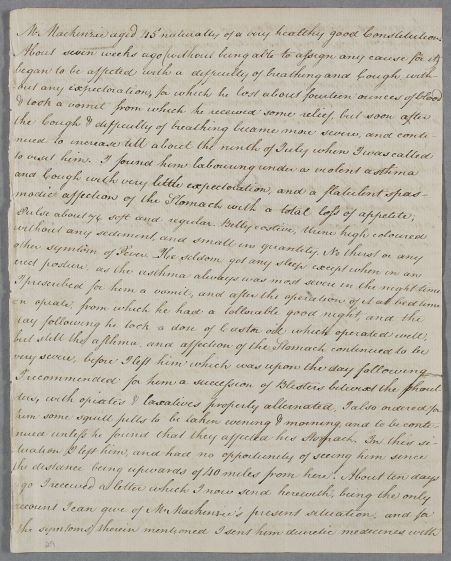 Mr. Mackenzie aged 45 naturally of a very healthy good Constitution.
About seven weeks ago (without being able to assign any cause for it)
began to be affected with a difficulty of breathing and Cough, with-
out any expectoration, for which he lost about fourteen ounces of blood
& took a vomit from which he received some relief, but soon after
the Cough & difficulty of breathing became more severe, and conti-
nued to increase till about the ninth of July when I was called
to visit him. I found him labouring under a violent asthma
and Cough with very little expectoration, and a flatulent spas-
modic affection of the Stomach with a total loss of appetite;
Pulse about 74 soft and regular. Belly costive, Urine high coloured
without any sediment, and small in quantity. No thirst or any
other symtom of Fever. He seldom got any sleep except when in an
erect posture, as the asthma always was most severe in the night time
I prescribed for him a vomit, and after the operation of it at bed time
an opiate, from which he had a tollarable good night, and the
day following he took a dose of Castor oil which operated well,
but still the asthma, and affection of the Stomach continued to be
very severe, before I left him which was upon the day following
I recommended for him a succession of Blisters betwixt the shoul
ders, with opiates & laxatives properly alternated, I also ordered for
him some squill pills to be taken evening & morning, and to be conti-
nued unless he found that they affected his Stomach. In this si-
tuation I left him, and had no opportunity of seeing him since
the distance being upwards of 40 miles from here. About ten days
ago I received a letter which I now send herewith, being the only
account I can give of Mr Mackenzie's present situation, and for
the symtoms therein mentioned I sent him diuretic medicines with